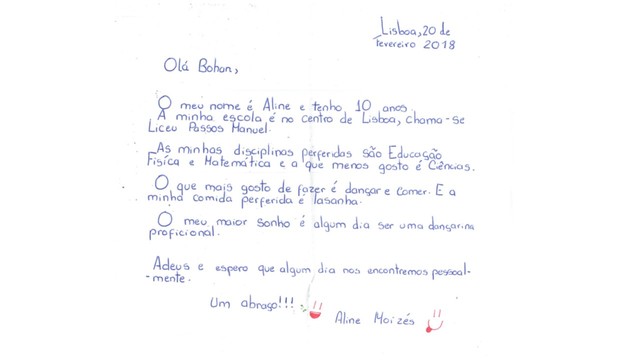 Lisboa, 20 de
fevereiro 2018
Olá Bohan,
O meu nome é Aline e tenho 10 anos.
A minha escola é no centro de Lisboa, chama-se
Liceu Passos Manuel.
As minhas disciplinas perferidas são Educação
Física e Matemática e a que menos gosto é Ciências.
O que mais gosto de fazer é dançar e comer. E a
minha comida perferida é lasanha.
O meu maior sonho é algum dia ser uma dançarina
proficional.
Adeus e espero que algum dia nos encontremos pessoal-
-mente.
Um abraço!!!
Aline Moizés